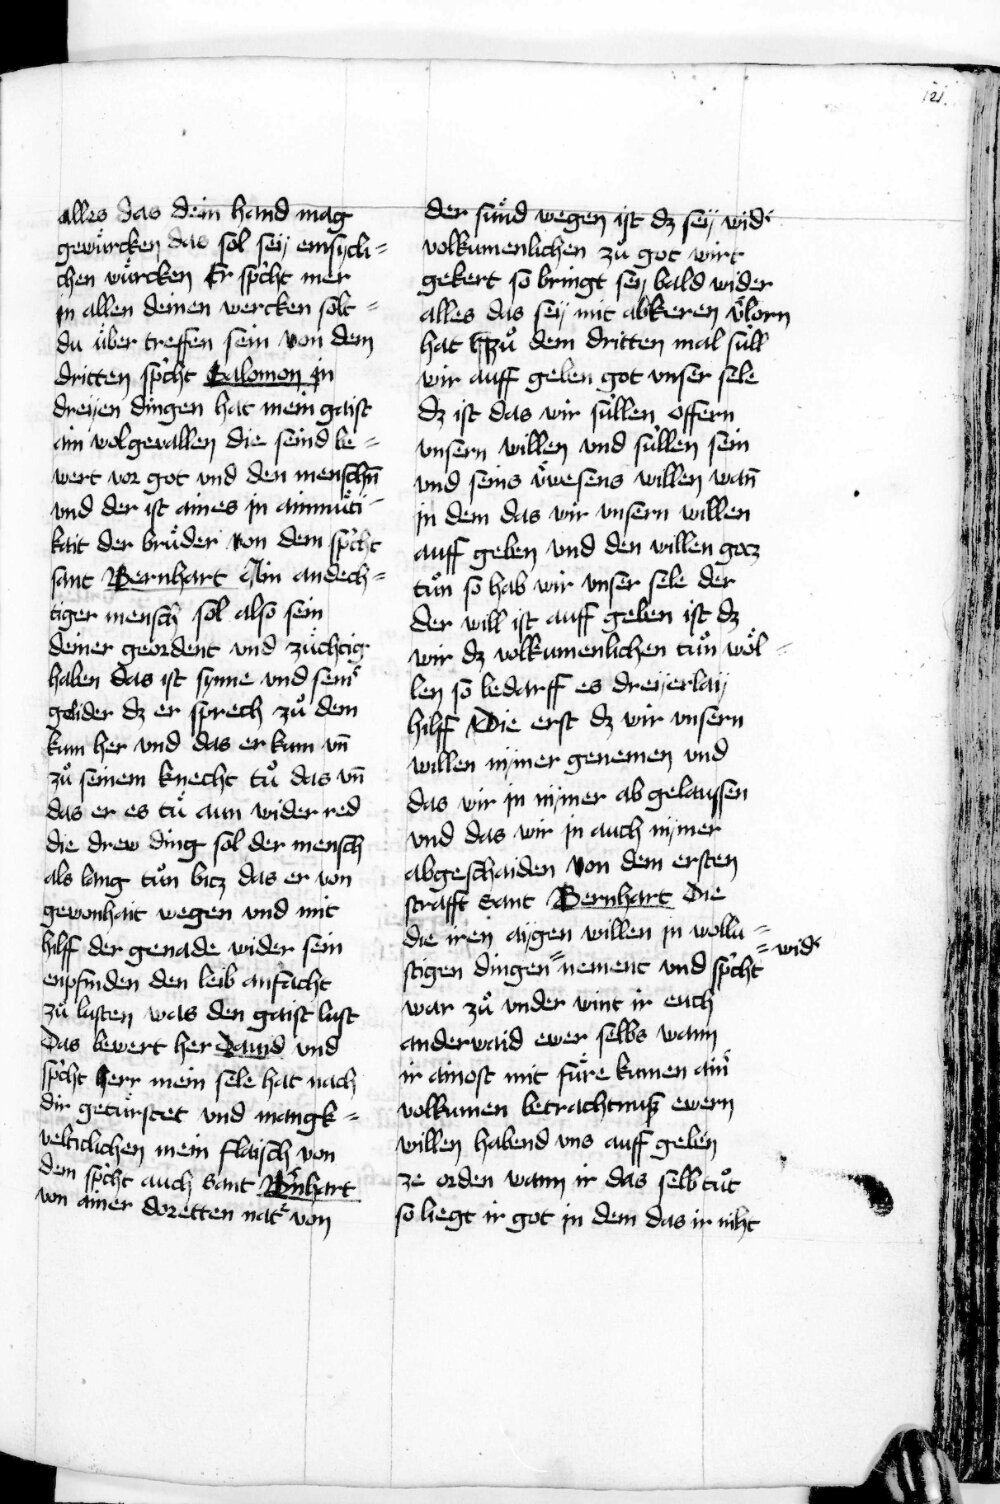 121.
alles das dein hand mag
gewürcken das sol seÿ emsycli=
chen würcken Er sp̾cht mer
in allen deinen wercken solt =
du über treffen sein von dem
dritten sp̾cht Salomon in
dreÿen dingen hat mein gaist
ain wolgevallen die seind be =
wert vor got vnd den menschn̄
vnd der ist aines in ainmüti=
kait der brůder von dem sp̾cht
sant Bernhart Ain andech=
tiger mensch sol also sein
deiner geordent vnd züchtig
haben das ist synne vnd sein͛
gelider dz er sprech zů dem
kum her vnd das er kum vn̄
zů seinem knecht tů das vn̄
das er es tů aun wider red
die drew ding sol der mensch
als lang tůn bicz das er von
gewonhait wegen vnd mit
hilff der genade wider sein
enpfinden den leib anfächt
zů lusten was den gaist lust
Das bewert her Dauid vnd
sp̾cht herr mein sele hat nach
dir getürstet vnd mangk=
velticlichen mein flaisch von
dem sp̾cht auch sant Bn͛hart
von ainer doretten nat͛ von
der sünd wegen ist dz seÿ wid͛
volkumenlichen zů got wirt
gekert so bringt seÿ bald wider
alles das seÿ mit abkeren v͛lorn
hat zů dem dritten mal süll
wir auff geben got vnser sele
dz ist das wir süllen offern
vnsern willen vnd süllen sein
vnd seins v͛wesens willen wan̄
in dem das wir vnsern willen
auff geben vnd den willen gocz
tůn so hab wir vnser sele der
der will ist auff geben ist dz
wir dz volkumenlichen tůn wöl=
len so bedarff es dreÿerlaÿ
hilff Die erst dz wir vnsern
willen nÿmer genemen vnd
das wir in nÿmer ab gelaussen
vnd das wir in auch nÿmer
abgeschaiden von dem ersten
strafft sant Bernhart Die
die iren aÿgen willen in wollu=
stigen dingen = nement vnd sp̾cht = wid͛
war zů vnder wint ir euch
anderwaid ewer selbs wann
ir ainost mit füre kumen ain͛
volkumen betrachtnuß ewern
willen habend vns auff geben
ze orden wann ir das selb tůt
so liegt ir got in dem das ir niht